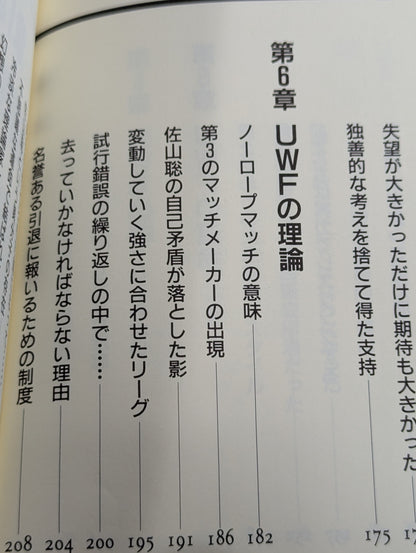 失望が大きかっただけに期待も大きかった
独善的な考えを捨てて得た支持 175
第6章 UWFの理論
ノーロープマッチの意味 182
第3のマッチメーカーの出現 186
佐山聡の自己矛盾が落とした影 191
変動していく強さに合わせたリーグ 195
試行錯誤の繰り返しの中で…… 200
去っていかなければならない理由 204
名誉ある引退に報いるための制度 208